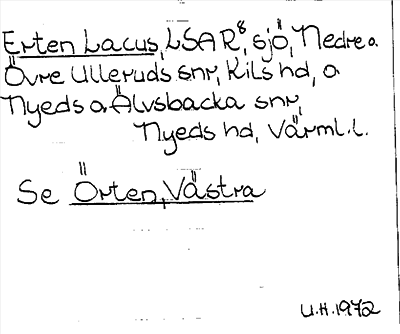 Erten Lacus, LSAR⁸, sjö, Nedre o.
Övre Ulleruds snr, Kils hd, o
Nyeds o. Älvsbacka snr,
Nyeds hd, Värml. l.
Se Örten, Västra
U.H. 1972